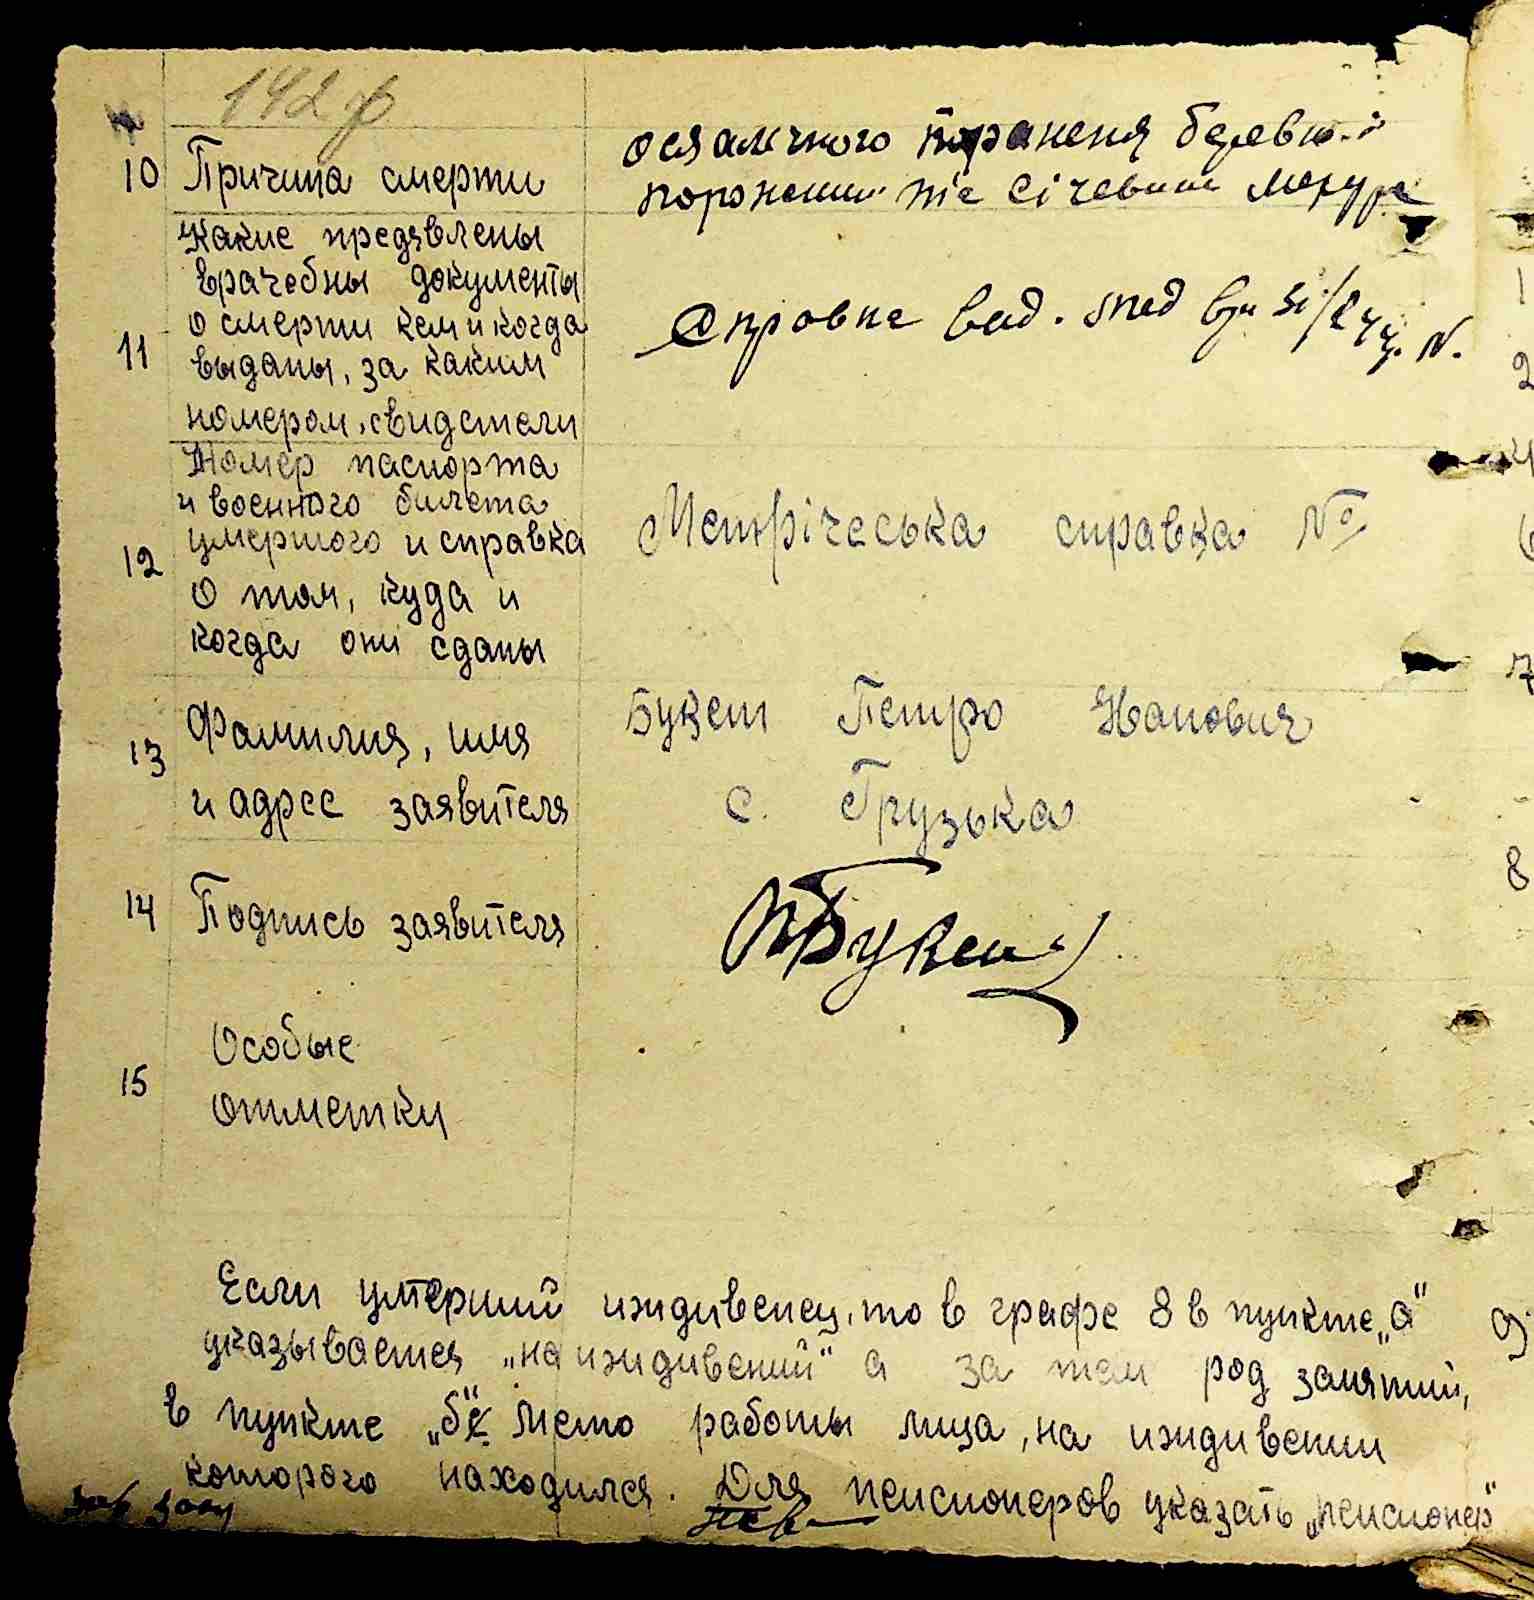 142
10 Причина смерти
пораненя
та січевини
11 Какие предявлены
врачебны документы
о смерти кем и когда
выданы, за каким
номером, свидетели
Справка вид. N.
12 Номер паспорта
и военного билета
умершого и справка
о том, куда и
когда они сданы
Метрічеська справка №
13 Фамилия, имя
и адрес заявителя
Букет Петро
с. Грузька
14 Подпись заявителя
ПБукет
15 Особые
отметки
Если умерший иждивенец, то в графе 8 в пункте „а"
указывается „на иждивений" а за тем род занятий,
в пункте „б" место работы лица, на иждивении
которого находился. Для пенсионеров указать „пенсионер"
1
2
4
6
7
8
9